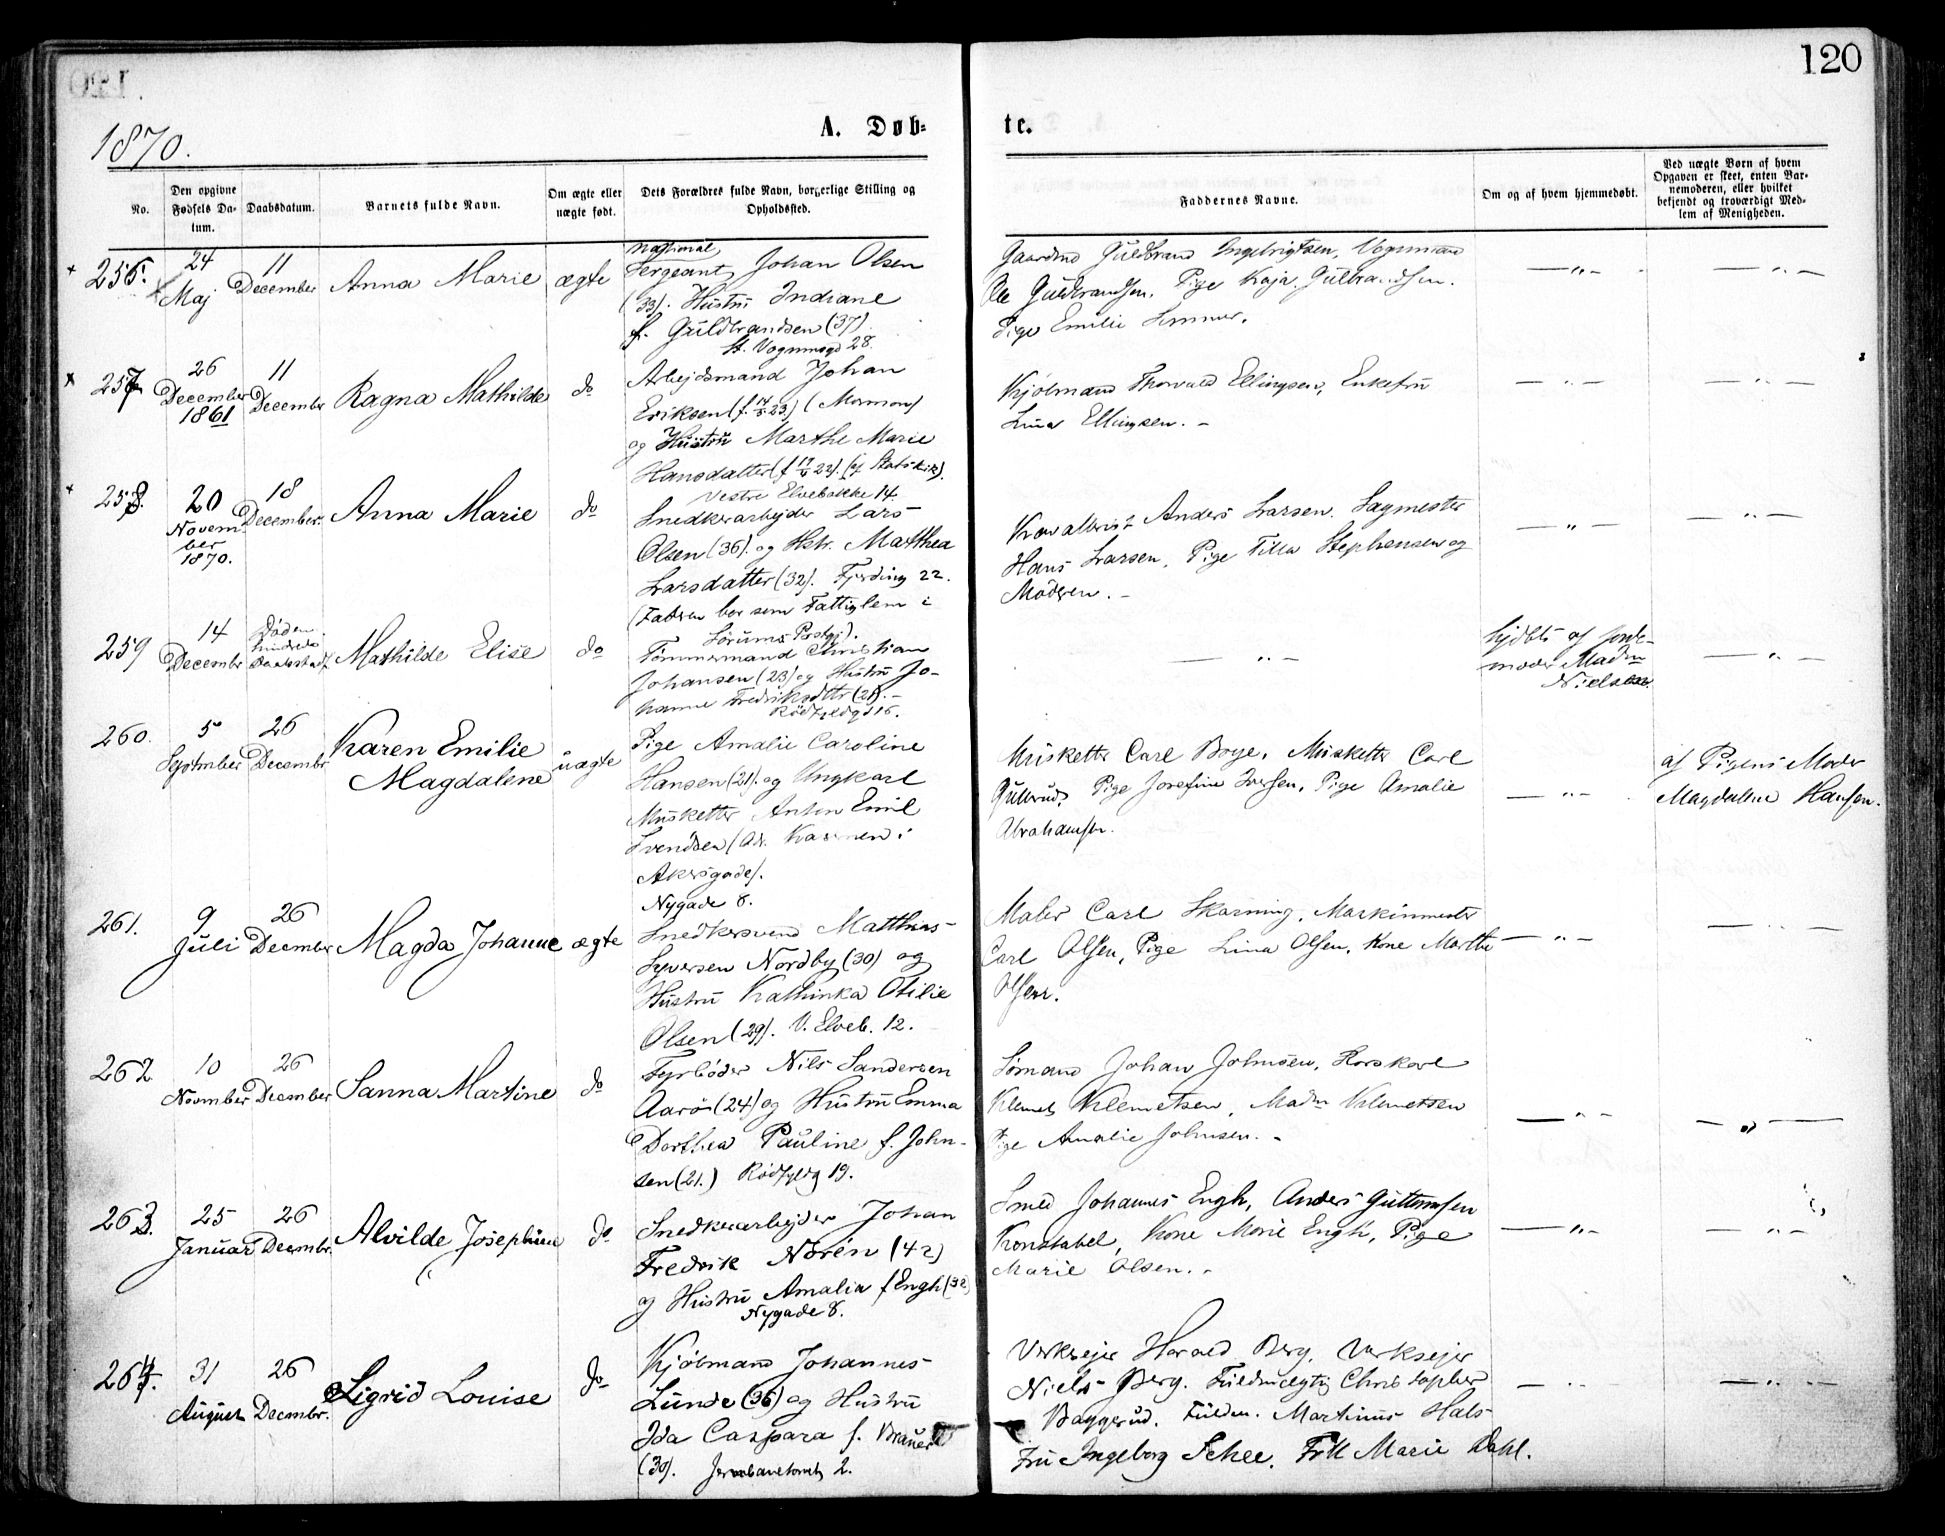 120
1870.
A. Døb-
te.
No.
Den opgivne Fødsels Datum.
Daabsdatum.
Barnets fulde Navn.
Om ægte eller uægte født.
Dets Forældres fulde Navn, borgerlige Stilling og Opholdssted.
Faddernes Navne.
Om og af hvem hjemmedøbt.
Ved uægte Børn af hvem Opgaven er skeet, enten Barnemoderen, eller hvilket bekjendt og troværdigt Medlem af Menigheden.
256.
24 Maj
11 December
Anna Marie
ægte
National
Sergeant, Johan Olsen
(33). Hustru Indiane
f. Guldbrandsen (37)
St. Vognmgd 28.
Gaardmd Guldbrand Ingebrigtsen, Vognmand
Ole Guldbrandsen, Pige Kaja Gulbrandsen.
Pige Emilie
257
26 December 1861
11 December
Ragna Mathilde
do
Arbejdsmand Johan
Eriksen (f. 23) (Mormon)
og Hustru Marthe Marie
Hansdatter (f. 22). (af Statskirk).
Vestre Elvebakke 14.
Kjøbmand Thorvald Ellingsen, Enkefru
Lina Ellingsen. -
258.
20 November 1870.
18 December.
Anna Marie
do
Snedkerarbejder Lars
Olsen (36). og Hstr. Matthea
Larsdatter (32). Fjerding 22.
(Faderen bor som Fattiglem i
Sørums Pastgj).
Kavallerist Anders Larsen. Sagmester
Hans Larsen, Pige Tilla Stephensen og
Moderen. -
259
14 Decembr
Døden hindrede Daabstadf.
Mathilde Elise
do
Tømmermand Christian
Johansen (23) og Hustru Jo-
hanne Fredriksdttr (21). -
Rødfyldgd 16.
hjdbt af Jorde-
moder Madm
Nielsen.
260.
5 September
26 Decembr
Karen Emilie
Magdalene
uægte
Pige Amalie Caroline
Hansen (21). og Ungkarl
Musketter Anton Emil
Svendsen (Ad. Kasernen i
Akersgade).
Nygade 8.
Musketter Carl Boye, Musketter Carl
Gullerud, Pige Josefine Iversen, Pige Amalie
Abrahamsen.
af Pigens Moder
Magdalene Hansen.
261.
9 Juli
26 Decmber
Magda Johanne
ægte
Snedkersvend Matthias
Syversen Nordby (30) og
Hustru Kathinka Otilie
Olsen (29). V. Elveb. 12.
Maler Carl Skarning, Maskinmester
Carl Olsen, Pige Lina Olsen, Kone Marthe
Olsen.
262
10 November
26 December
Sanna Martine
do
Fyrbøder Nils Sandersen
Aarøs (24) og Hustru Emma
Dorthea Pauline f. John-
sen (21.) Rødfyldg 19.
Sømand Johan Johnsen, Horskarl
Klemet Klemetsen, Madm Klemetsen
Pige Amalie Johnsen. -
263.
25 Januar
26 Decembr.
Alvilde Josephine
do
Snedkerarbejder Johan
Fredrik Norén (42)
og Hustru Amalia f Engh (32)
Nygade 8.
Smed Johannes Engh, Anders Guttormsen
Konstabel, Kone Marie Engh, Pige
Marie Olsen. -
264.
31 August
26 Decembr.
Sigrid Louise
do
Kjøbmand Johannes
Lunde (36) og Hustru
Ida Caspara f. Brauer
(30). Jernbanetorvet 2.
Verksejer Harald Berg, Verksejer
Niels Berg. Fuldmægtig Christopher
Baggerud. Fuldm. Martinus Hals
Fru Ingeborg Schee. Frk Marie Dahl.